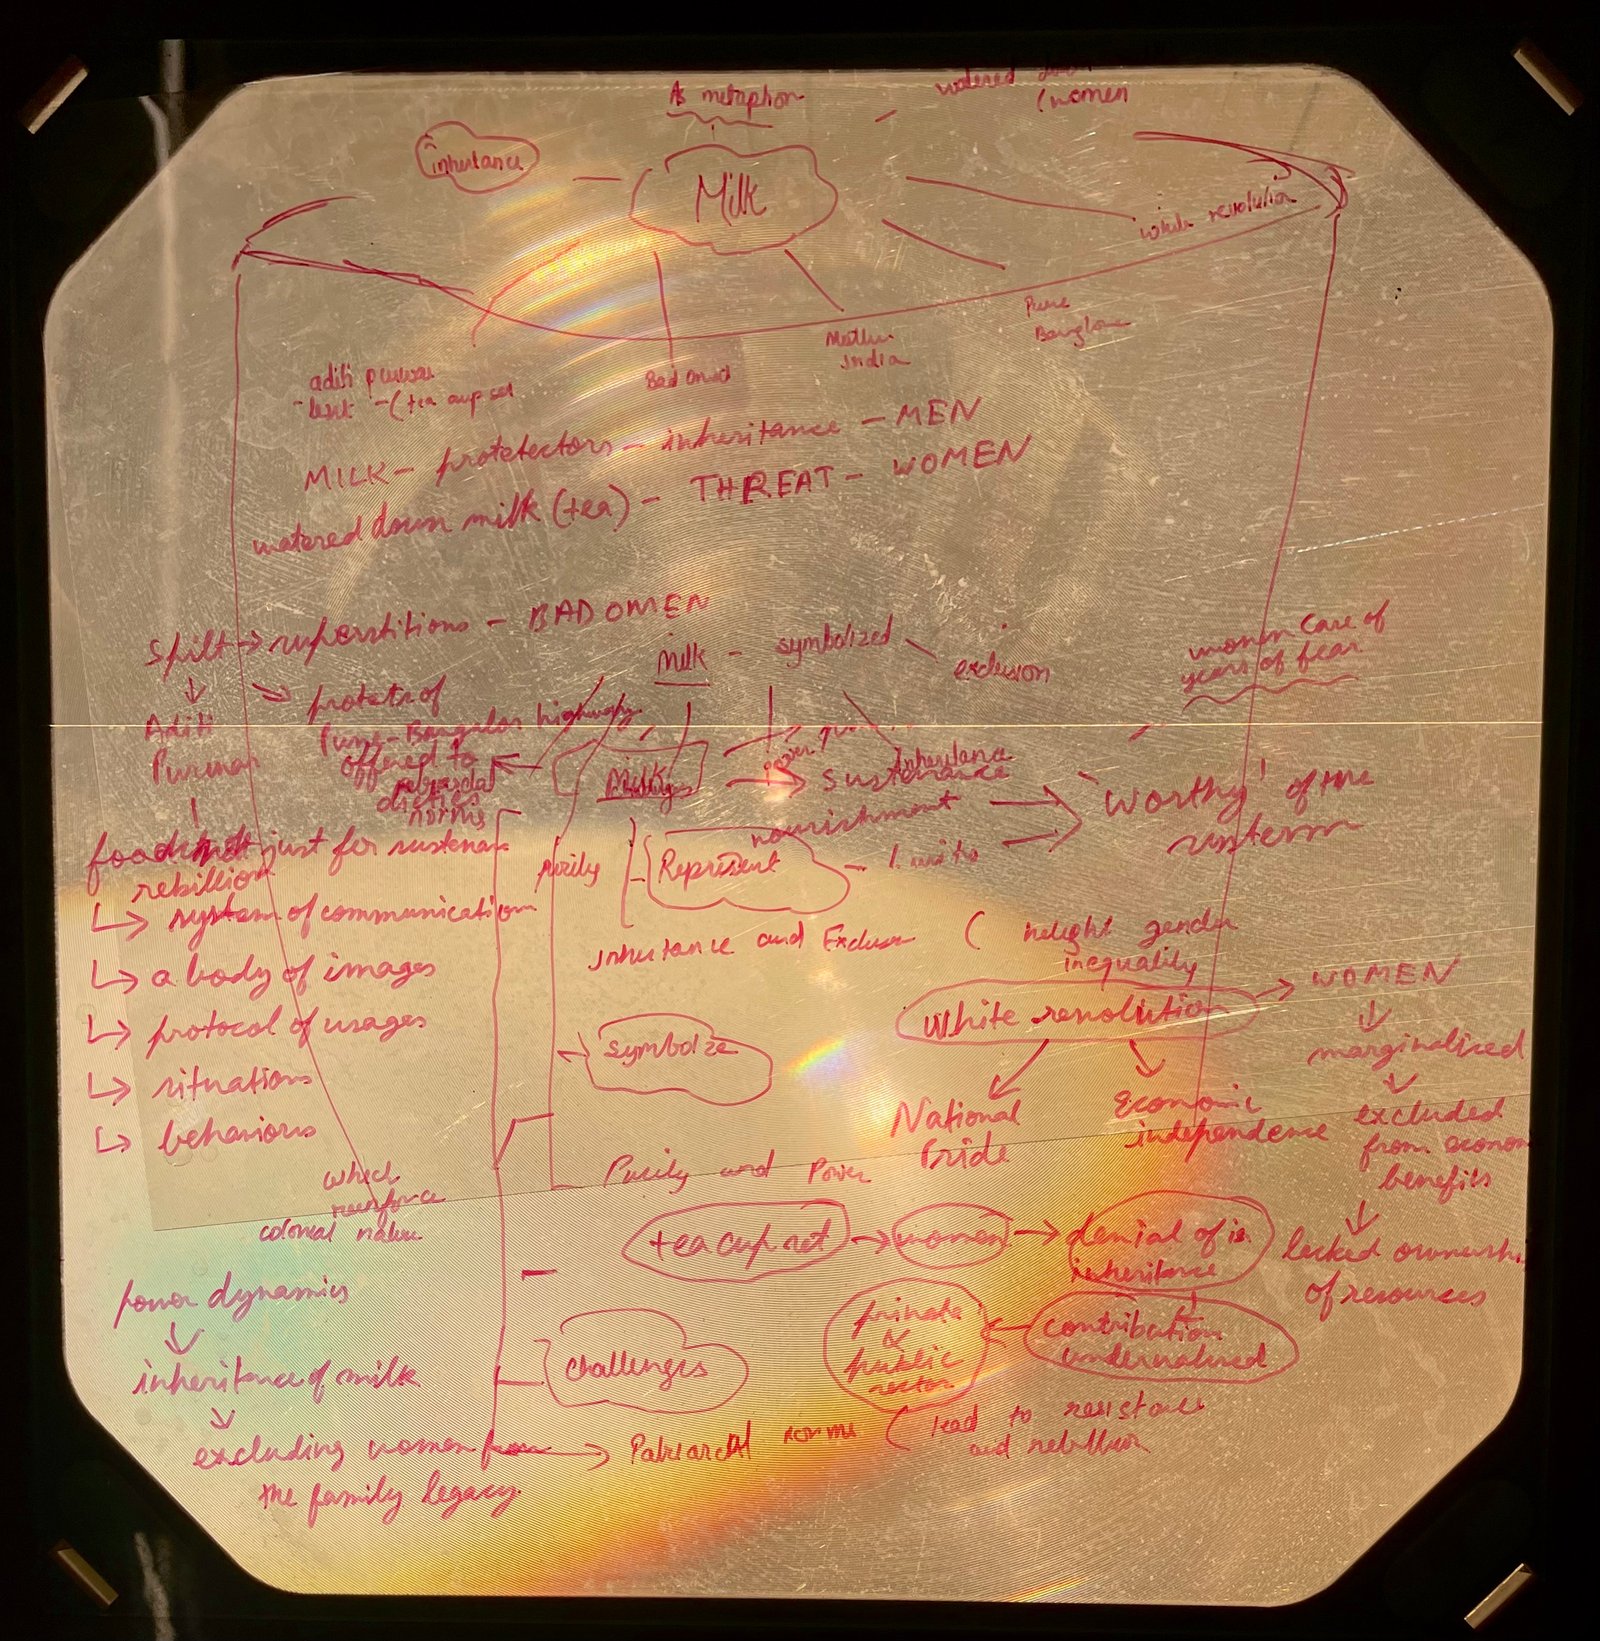 As metaphor
watered
(women
inheritance
Milk
white revolution
Pune
Banglore
India
aditi
(tea cup set
MILK - protetectors - inheritance - MEN
watered down milk (tea) - THREAT - WOMEN
spilt → superstitions - BAD OMEN
Milk - symbolized
exclusion
women care of
years of fear
Aditi
Pune-Bangalor highway
offered to
norms
Milk
inheritance
sustenance
nourishment
'worthy' of the
just for
rebillion
purity
Represent
system of communication
inheritance and
( gender
inequality
a body of images
white revolution
WOMEN
protocol of usages
symbolize
marginalized
situations
National
Pride
Economic
independence
excluded
from econom
benefits
behaviors
which
reinforce
colonial nature
Purity and Power
tea cup set
women
denial of
inheritance
lacked ownersh
of resources
power dynamics
private
&
public
sector
contribution
undervalued
inheritance of milk
challenges
excluding women from
the family legacy.
Patriarchal norms ( lead to resistance
and rebellion